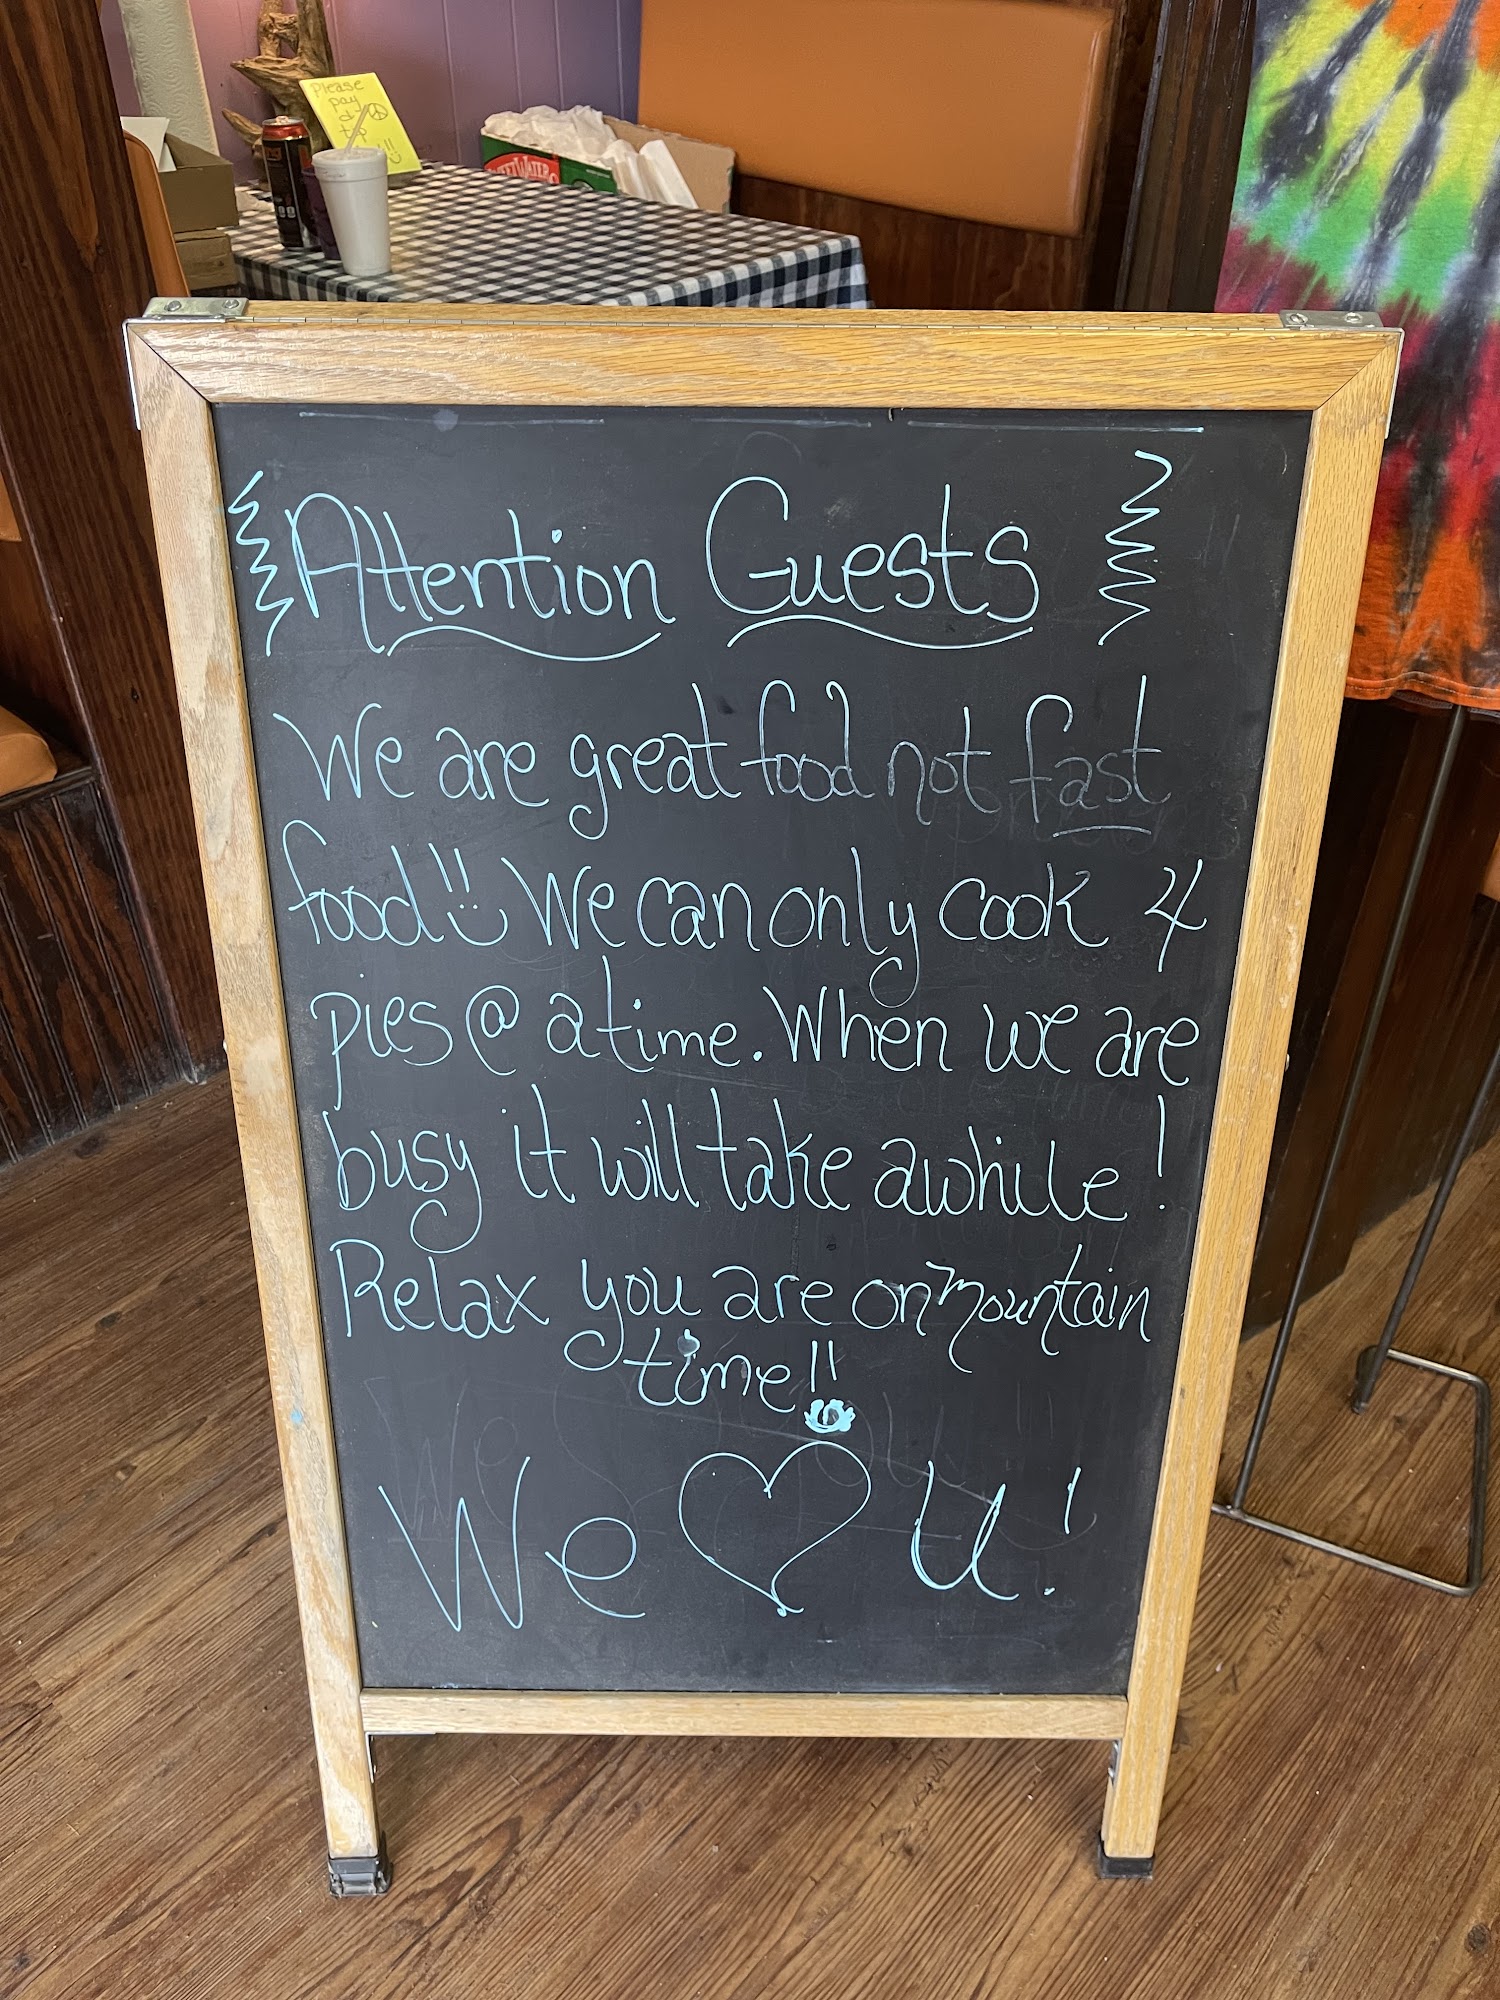 Please
pay
@
top
SWEETWATER
Attention Guests
We are great food not fast
food!! We can only cook 4
pies @ a time. When we are
busy it will take awhile!
Relax you are on mountain
time!!
We ♡ U!